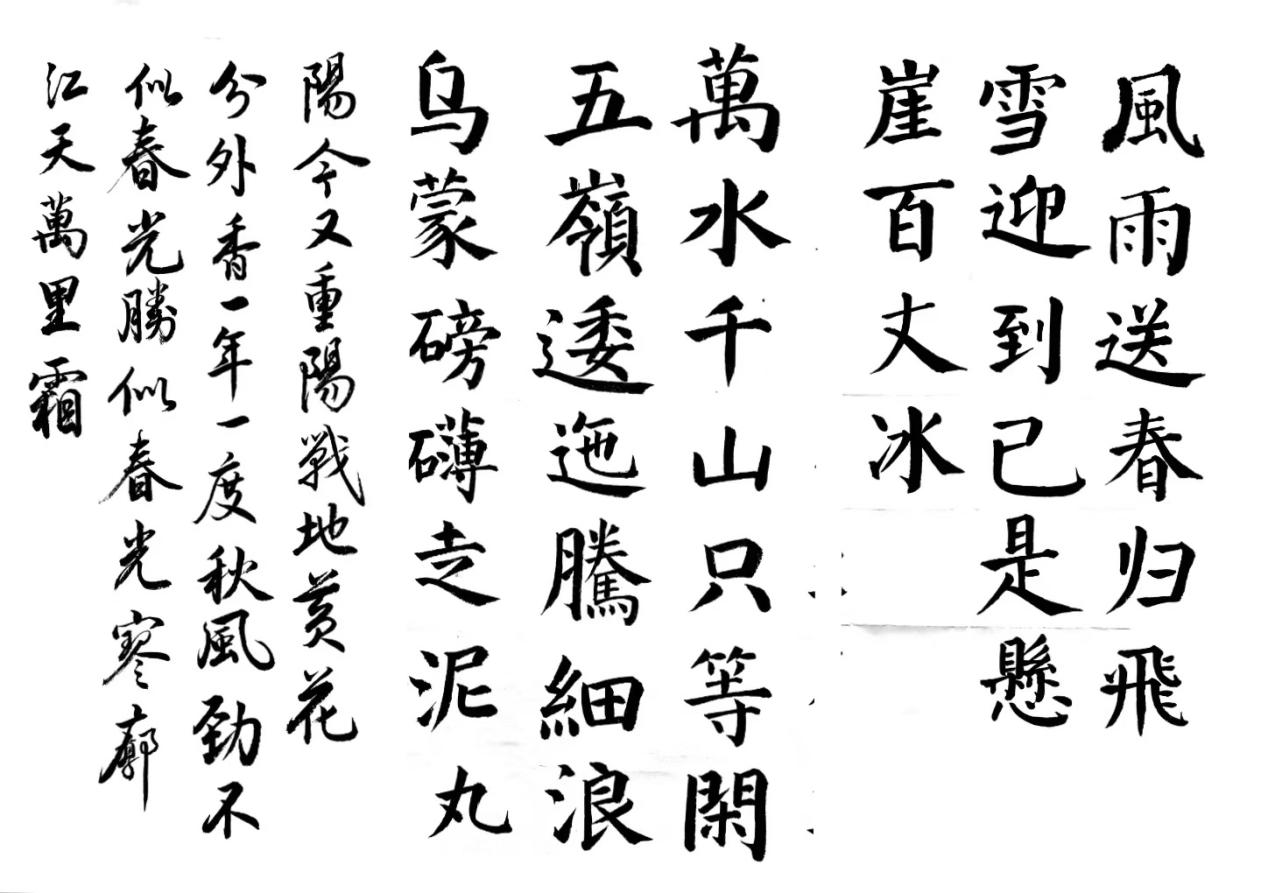 風雨送春归飛
雪迎到已是懸
崖百丈冰
萬水千山只等閑
五嶺逶迤騰細浪
乌蒙磅礴走泥丸
陽今又重陽戰地黄花
分外香一年一度秋風勁不
似春光勝似春光寥廓
江天萬里霜